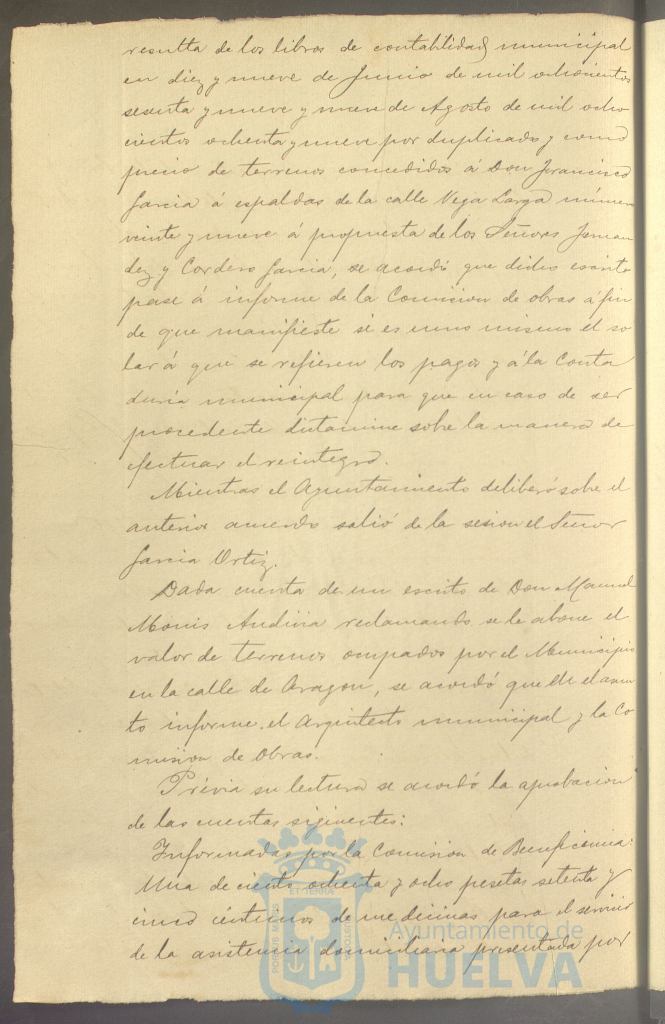 resulta de los libros de contabilidad municipal
en diez y nueve de Junio de mil ochocientos
sesenta y nueve y nueve de Agosto de mil ocho
cientos ochenta y nueve por duplicado y como
precio de terrenos concedidos á Don Francisco
Garcia á espaldas de la calle Vega Larga número
veinte y nueve á propuesta de los Señores Fernan
dez y Cordero Garcia, se acordó que dicho escrito
pase á informe de la Comision de obras á fin
de que manifieste si es uno mismo el so
lar á que se refieren los pagos y á la Conta
duria municipal para que en caso de ser
procedente dictamine sobre la manera de
efectuar el reintegro.
Mientras el Ayuntamiento deliberó sobre el
anterior acuerdo salió de la sesion el Señor
Garcia Ortiz.
Dada cuenta de un escrito de Don Manuel
Monis reclamando se le abone el
valor de terrenos ocupados por el Municipio
en la calle de Aragon, se acordó que el asun
to informe el Arquitecto municipal y la Co
mision de Obras.
Prévia su lectura se acordó la aprobacion
de las cuentas siguientes:
Informadas por la Comision de Beneficencia:
Una de ciento ochenta y ocho pesetas setenta y
cinco céntimos de medicinas para el servicio
de la asistencia domiciliaria presentada por
Ayuntamiento de
HUELVA